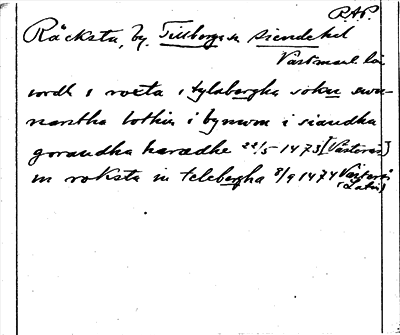 RAP.
Räcksta, by. Tillberga sn Siende hd
Västmanl. län
iordh i roëta i tylabergha sokn
nørstha i bynom i siændha
gorandha hæradhe 22/5 1473 [Västerås]
in roksta in telebergha 8/9 1474 Västerås